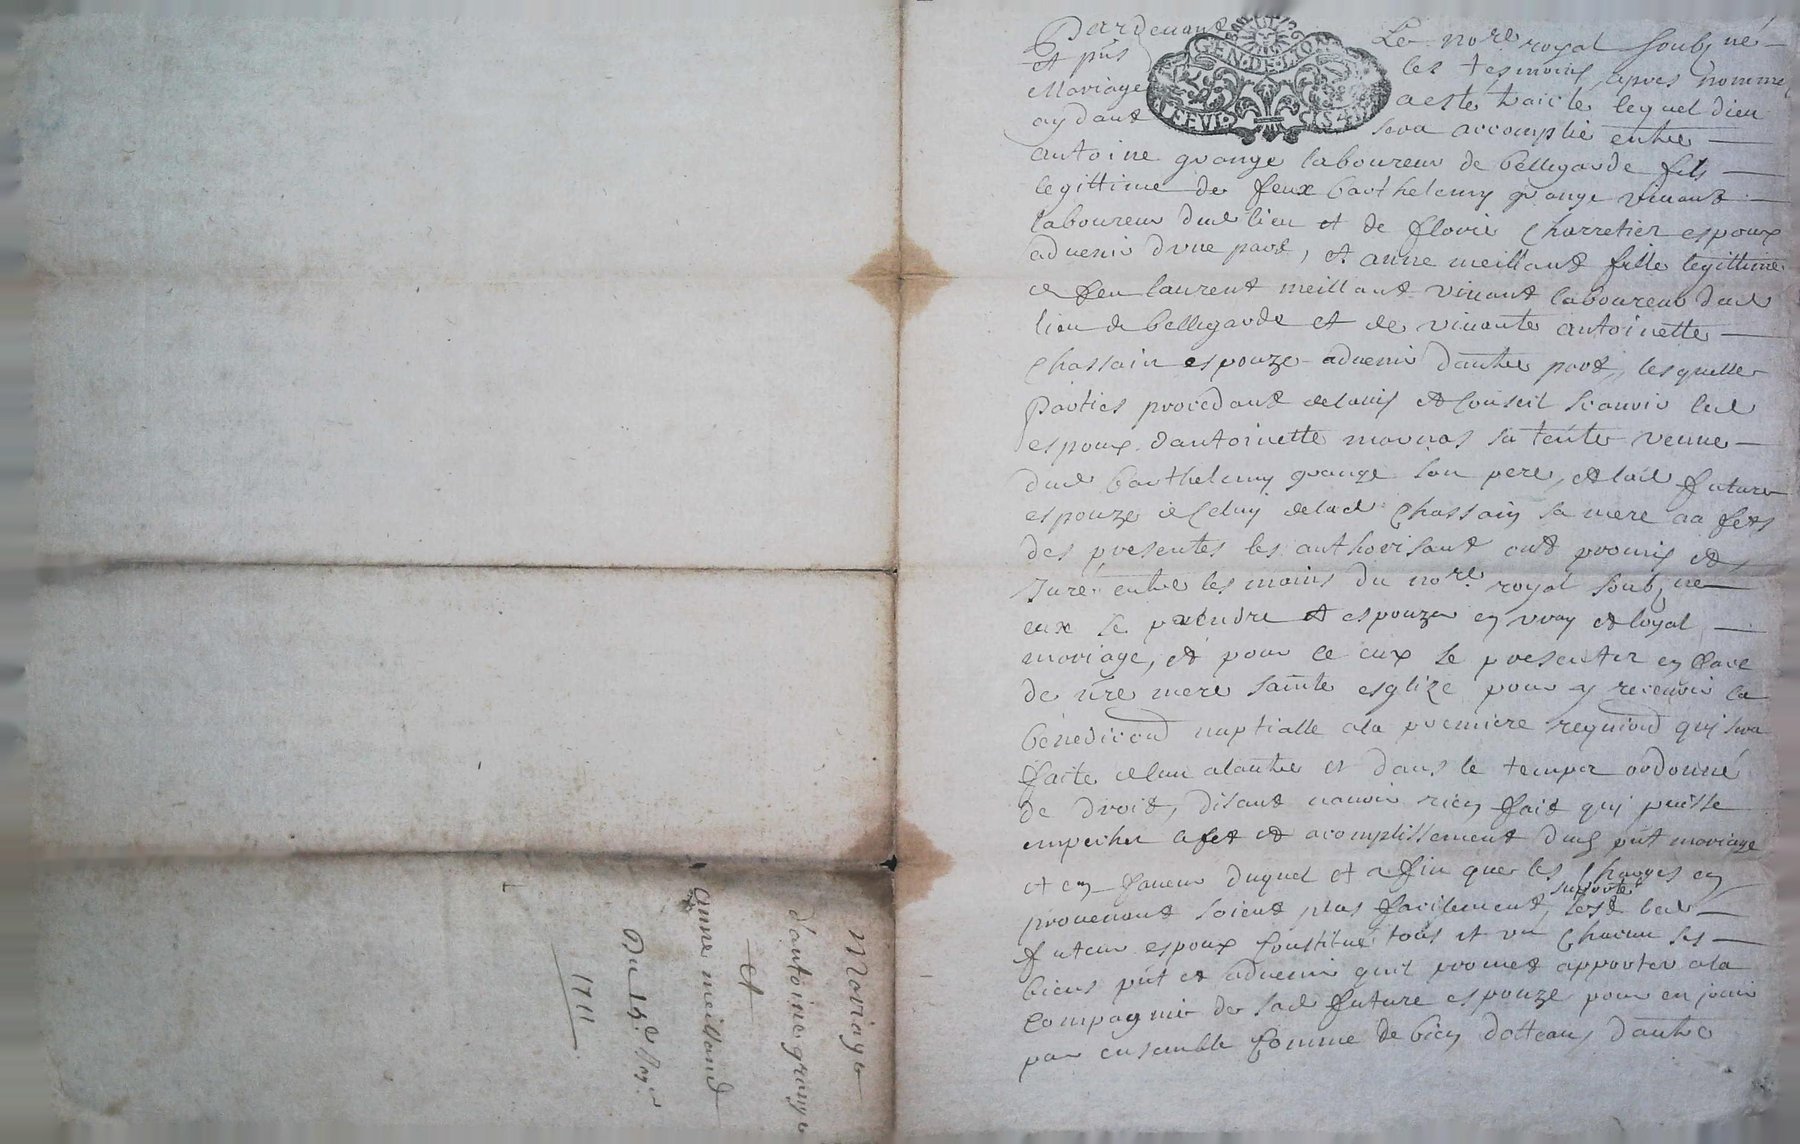 Pardevant Le no.re royal soubz.né
et pñs les tesmoins apres nomme
Mariage a este traicte lequel dieu
aydant sera accomplie entre
antoine grange laboureur de bellegarde fils
legittime de feux barthelemy grange vivant
laboureur dud lieu et de florie Charretier espoux
advenir d'vne part, et anne meillant fille legittime
de feu laurent meillant vivant laboureur dud
lieu de bellegarde et de vivante antoinette
Chassain espouze advenir dautre part, lesquelles
Parties procedant de lavis et Conseil scavoir led
espoux dantoinette mavras sa tente veuve
dud barthelemy grange son pere, et lad future
espouze de Celuy de lad Chassain sa mere aa fets
des presentes les authorisant ont promis et
Juré entre les mains du no.re royal soubz.né
eux se prendre et espouzer en vray et loyal
mariage, et pour ce eux se presenter en face
de ñre mere sainte esglize pour y recevoir la
benediction nuptialle ala premiere requisiõn quy sera
faite de lun alautre et dans le temps ordonné
de droit, disant navoir rien fait quy puisse
empecher a fet et acomplissement dud pñt mariage
et en faveur duquel et afin que les Charges en
provenant soient plus facilement supporté led
futeur espoux Constitué tous et vn Chacun ses
biens pñt et advenir quil promet apporter ala
Compagnie de sad future espouze pour en jouir
par ensemble Comme de bien dotteaux dautre
GEN·DE·LYON
Mariage
d'antoine grange
et
anne meilland
Du 15.e
1711